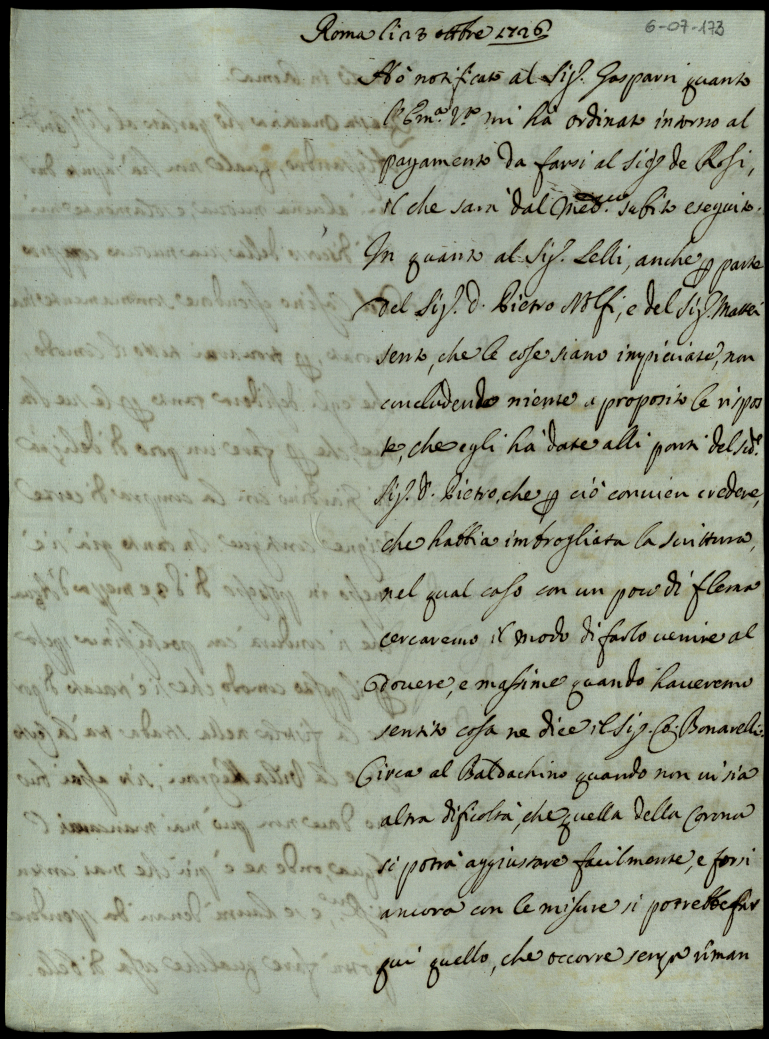 Roma li 23 ottbre 1726
6-07-173
Hò notificato al Sig.r Gasparri quanto
l'Em.a V.ra mi hà ordinato intorno al
pagamento da farsi al Sig.r de Rosi,
il che sarà dal Med.mo subito eseguito.
In quanto al Sig.r Lelli, anche p parte
del Sig.r D. Pietro Nolfi, e del Sig.r Mattei
sento, che le cose siano impicciate, non
concludendo niente a proposito le rispos
te, che egli hà date alli ponti del sud.o
Sig.r D. Pietro, che p ciò convien credere,
che habbia imbrogliata la scrittura,
nel qual caso con un poco di flema
cercaremo il modo di farlo venire al
dovere, e massime quando haveremo
sentito cosa ne dice il Sig.r Co. Bonarelli.
Circa al Baldachino quando non vi sia
altra dificoltà, che quella della Corona
si potrà aggiustare facilmente, e forsi
ancora con le misure si potrebbe far
qui quello, che occorre senza riman